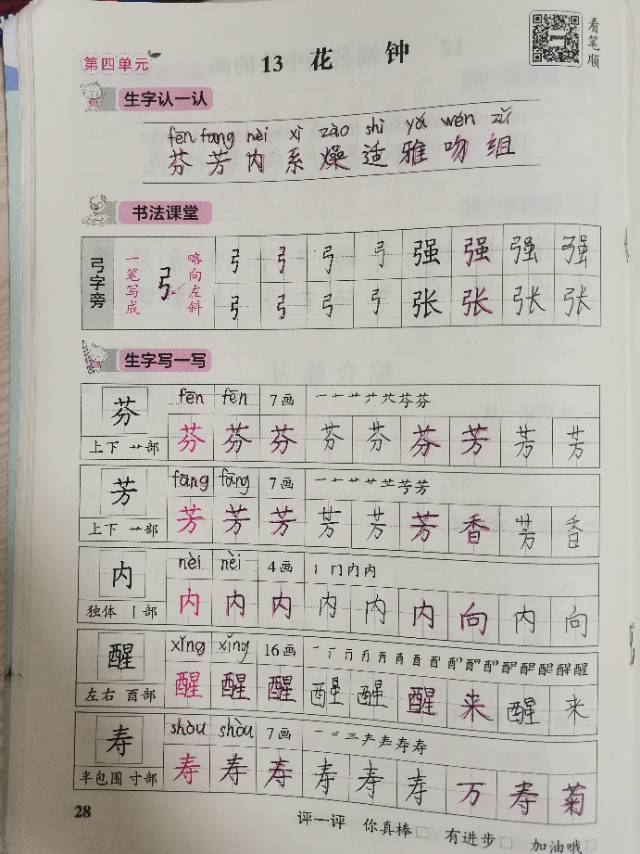 看笔顺
第四单元
13 花 钟
生字认一认
fēn fāng nèi xì zào shì yǎ wěn zǔ
芬 芳 内 系 燥 适 雅 吻 组
书法课堂
弓字旁 一笔写成 略向左斜
弓 弓 弓 弓 强 强 强 强
弓 弓 弓 弓 张 张 张 张
生字写一写
芬 fēn fēn 7画
上下 艹部 芬 芬 芬 芬 芬 芬 芳 芳 芳
芳 fāng fāng 7画
上下 艹部 芳 芳 芳 芳 芳 芳 香 芳 香
内 nèi nèi 4画
独体 丨部 内 内 内 内 内 内 向 内 向
醒 xǐng xǐng 16画
左右 酉部 醒 醒 醒 醒 醒 醒 来 醒 来
寿 shòu shòu 7画
半包围 寸部 寿 寿 寿 寿 寿 寿 万 寿 菊
28
评一评 你真棒□ 有进步□ 加油哦□